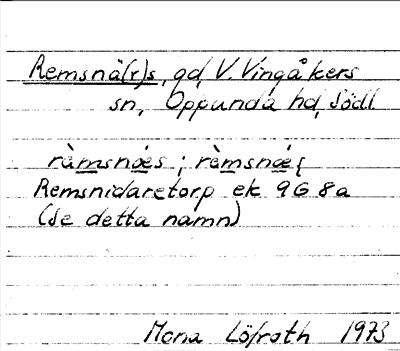 Remsnä(r)s, gd, V. Vingåkers
sn, Oppunda hd, Södl
ràmsnǽs ; rèmsnǽ{
Remsnidaretorp ek 9G 8a
(Se detta namn)
Mona Löfroth 1973